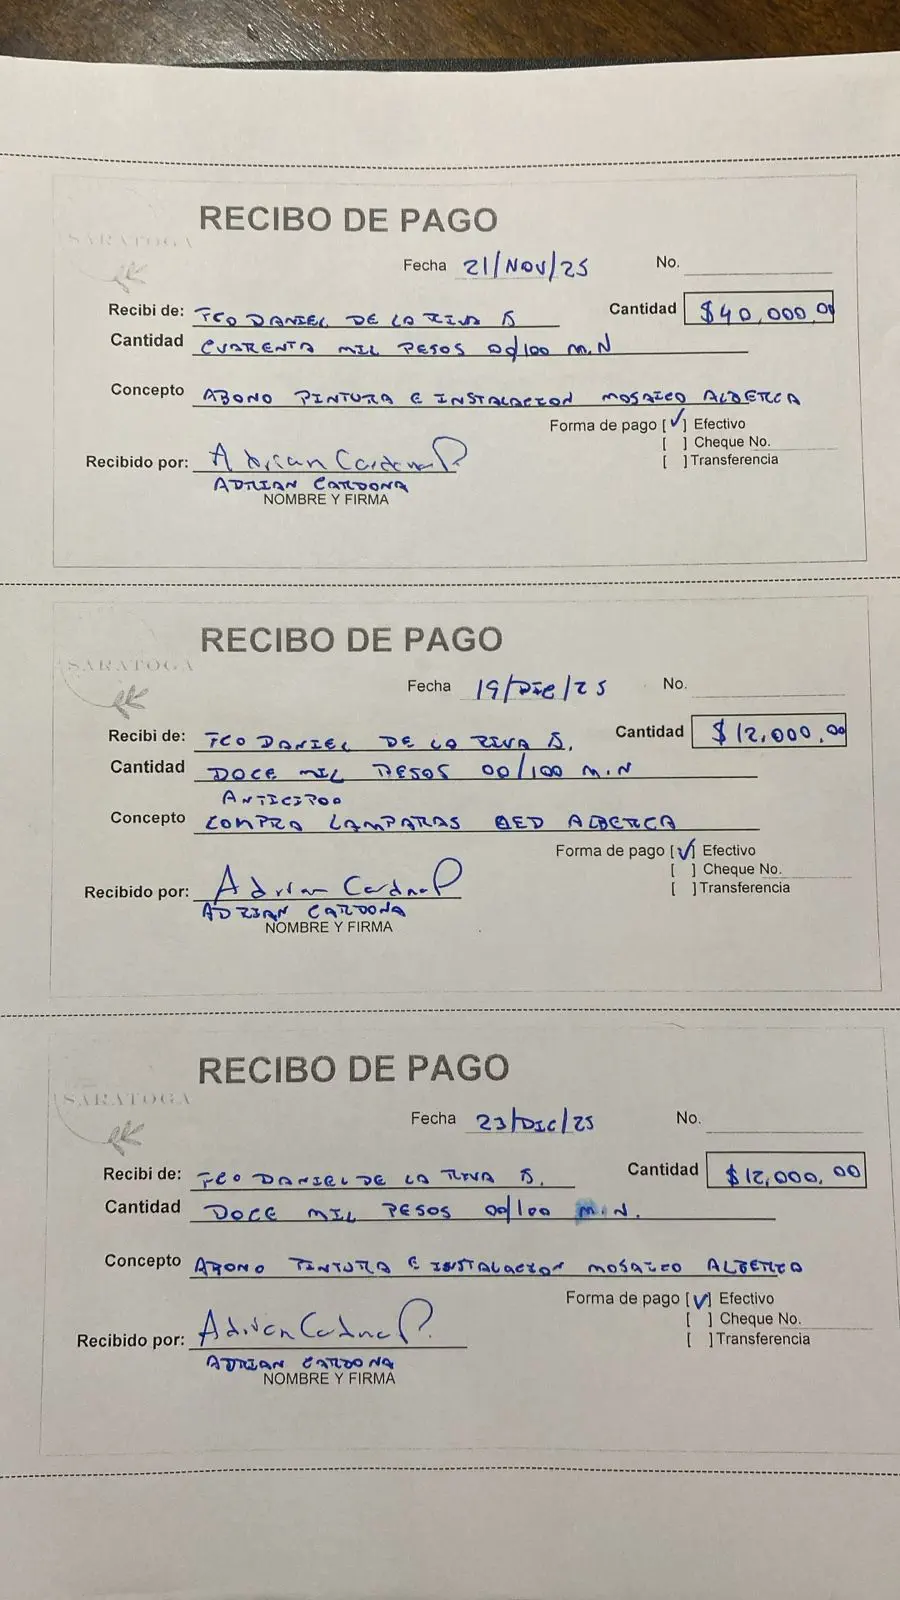 SARATOGA
RECIBO DE PAGO
Fecha 21/NOV/25 No.
Recibi de: FCO DANIEL DE LA RIVA S Cantidad $40,000.00
Cantidad CUARENTA MIL PESOS 00/100 M.N
Concepto ABONO PINTURA E INSTALACION MOSAICO ALBERCA
Forma de pago [✓] Efectivo
[ ] Cheque No.
[ ] Transferencia
Recibido por: Adrian Cardona P
ADRIAN CARDONA
NOMBRE Y FIRMA
SARATOGA
RECIBO DE PAGO
Fecha 19/DIC/25 No.
Recibi de: FCO DANIEL DE LA RIVA S. Cantidad $12,000.00
Cantidad DOCE MIL PESOS 00/100 M.N
ANTICIPO
Concepto COMPRA LAMPARAS LED ALBERCA
Forma de pago [✓] Efectivo
[ ] Cheque No.
[ ] Transferencia
Recibido por: Adrian Cardona P
ADRIAN CARDONA
NOMBRE Y FIRMA
SARATOGA
RECIBO DE PAGO
Fecha 23/DIC/25 No.
Recibi de: FCO DANIEL DE LA RIVA S. Cantidad $12,000.00
Cantidad DOCE MIL PESOS 00/100 M.N.
Concepto ABONO PINTURA E INSTALACION MOSAICO ALBERCA
Forma de pago [✓] Efectivo
[ ] Cheque No.
[ ] Transferencia
Recibido por: Adrian Cardona P.
ADRIAN CARDONA
NOMBRE Y FIRMA